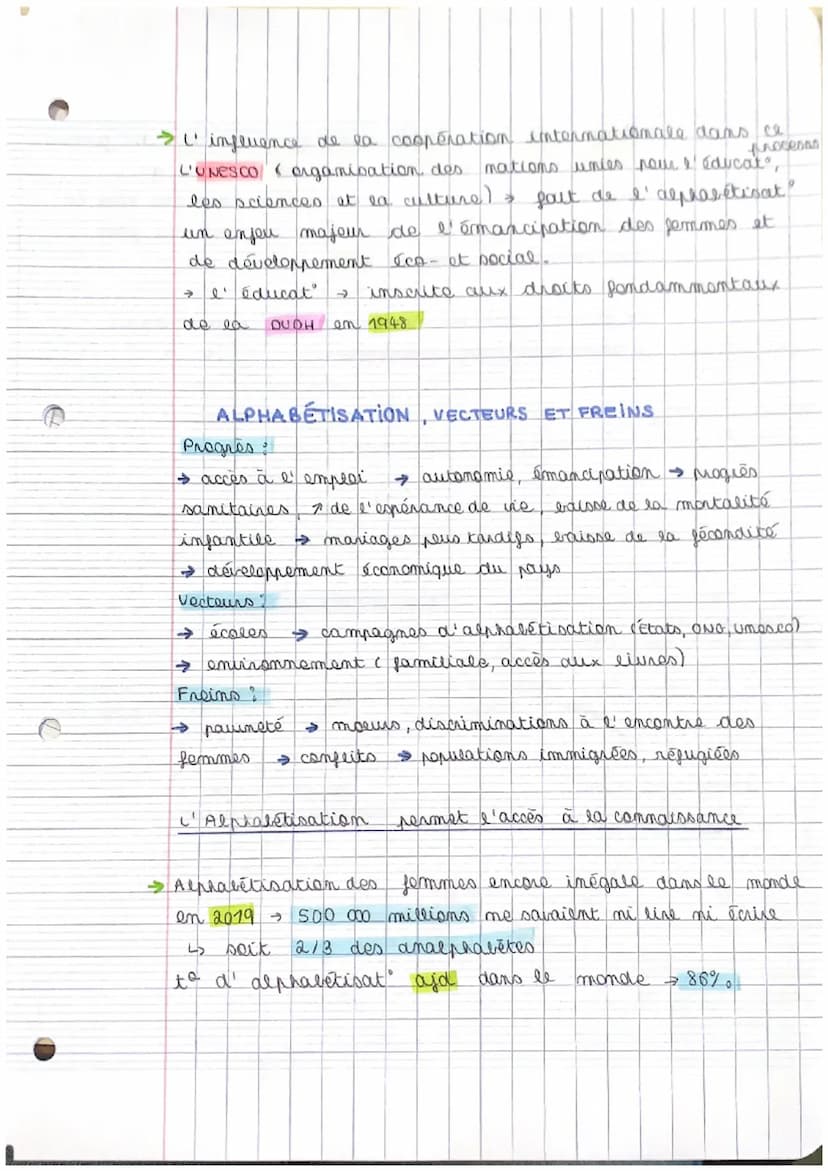 → L'influence de la coopération internationale dans ce processus
L'UNESCO (organisation des nations unies pour l'éducat°,
les sciences et la culture) → fait de l'alphabétisat°
un enjeu majeur de l'émancipation des femmes et
de développement éco- et social.
→ l'éducat° → inscrite aux droits fondammentaux
de la DUDH en 1948
ALPHABÉTISATION, VECTEURS ET FREINS
Progrès :
→ accès à l'emploi → autonomie, émancipation → progrès
sanitaires, ↗ de l'espérance de vie, baisse de la mortalité
infantile → mariages plus tardifs, baisse de la fécondité
→ développement économique du pays
Vecteurs :
→ écoles → campagnes d'alphabétisation (États, ONG, Unesco)
→ environnement (familiale, accès aux livres)
Freins :
→ pauvreté → moeurs, discriminations à l'encontre des
femmes → conflits → populations immigrées, réfugiées
L'Alphabétisation permet l'accès à la connaissance
→ Alphabétisation des femmes encore inégale dans le monde
en 2019 → 500 000 millions ne savaient ni lire ni écrire
↳ soit 2/3 des analphabètes
tx d'alphabétisat° ajd dans le monde → 86%.